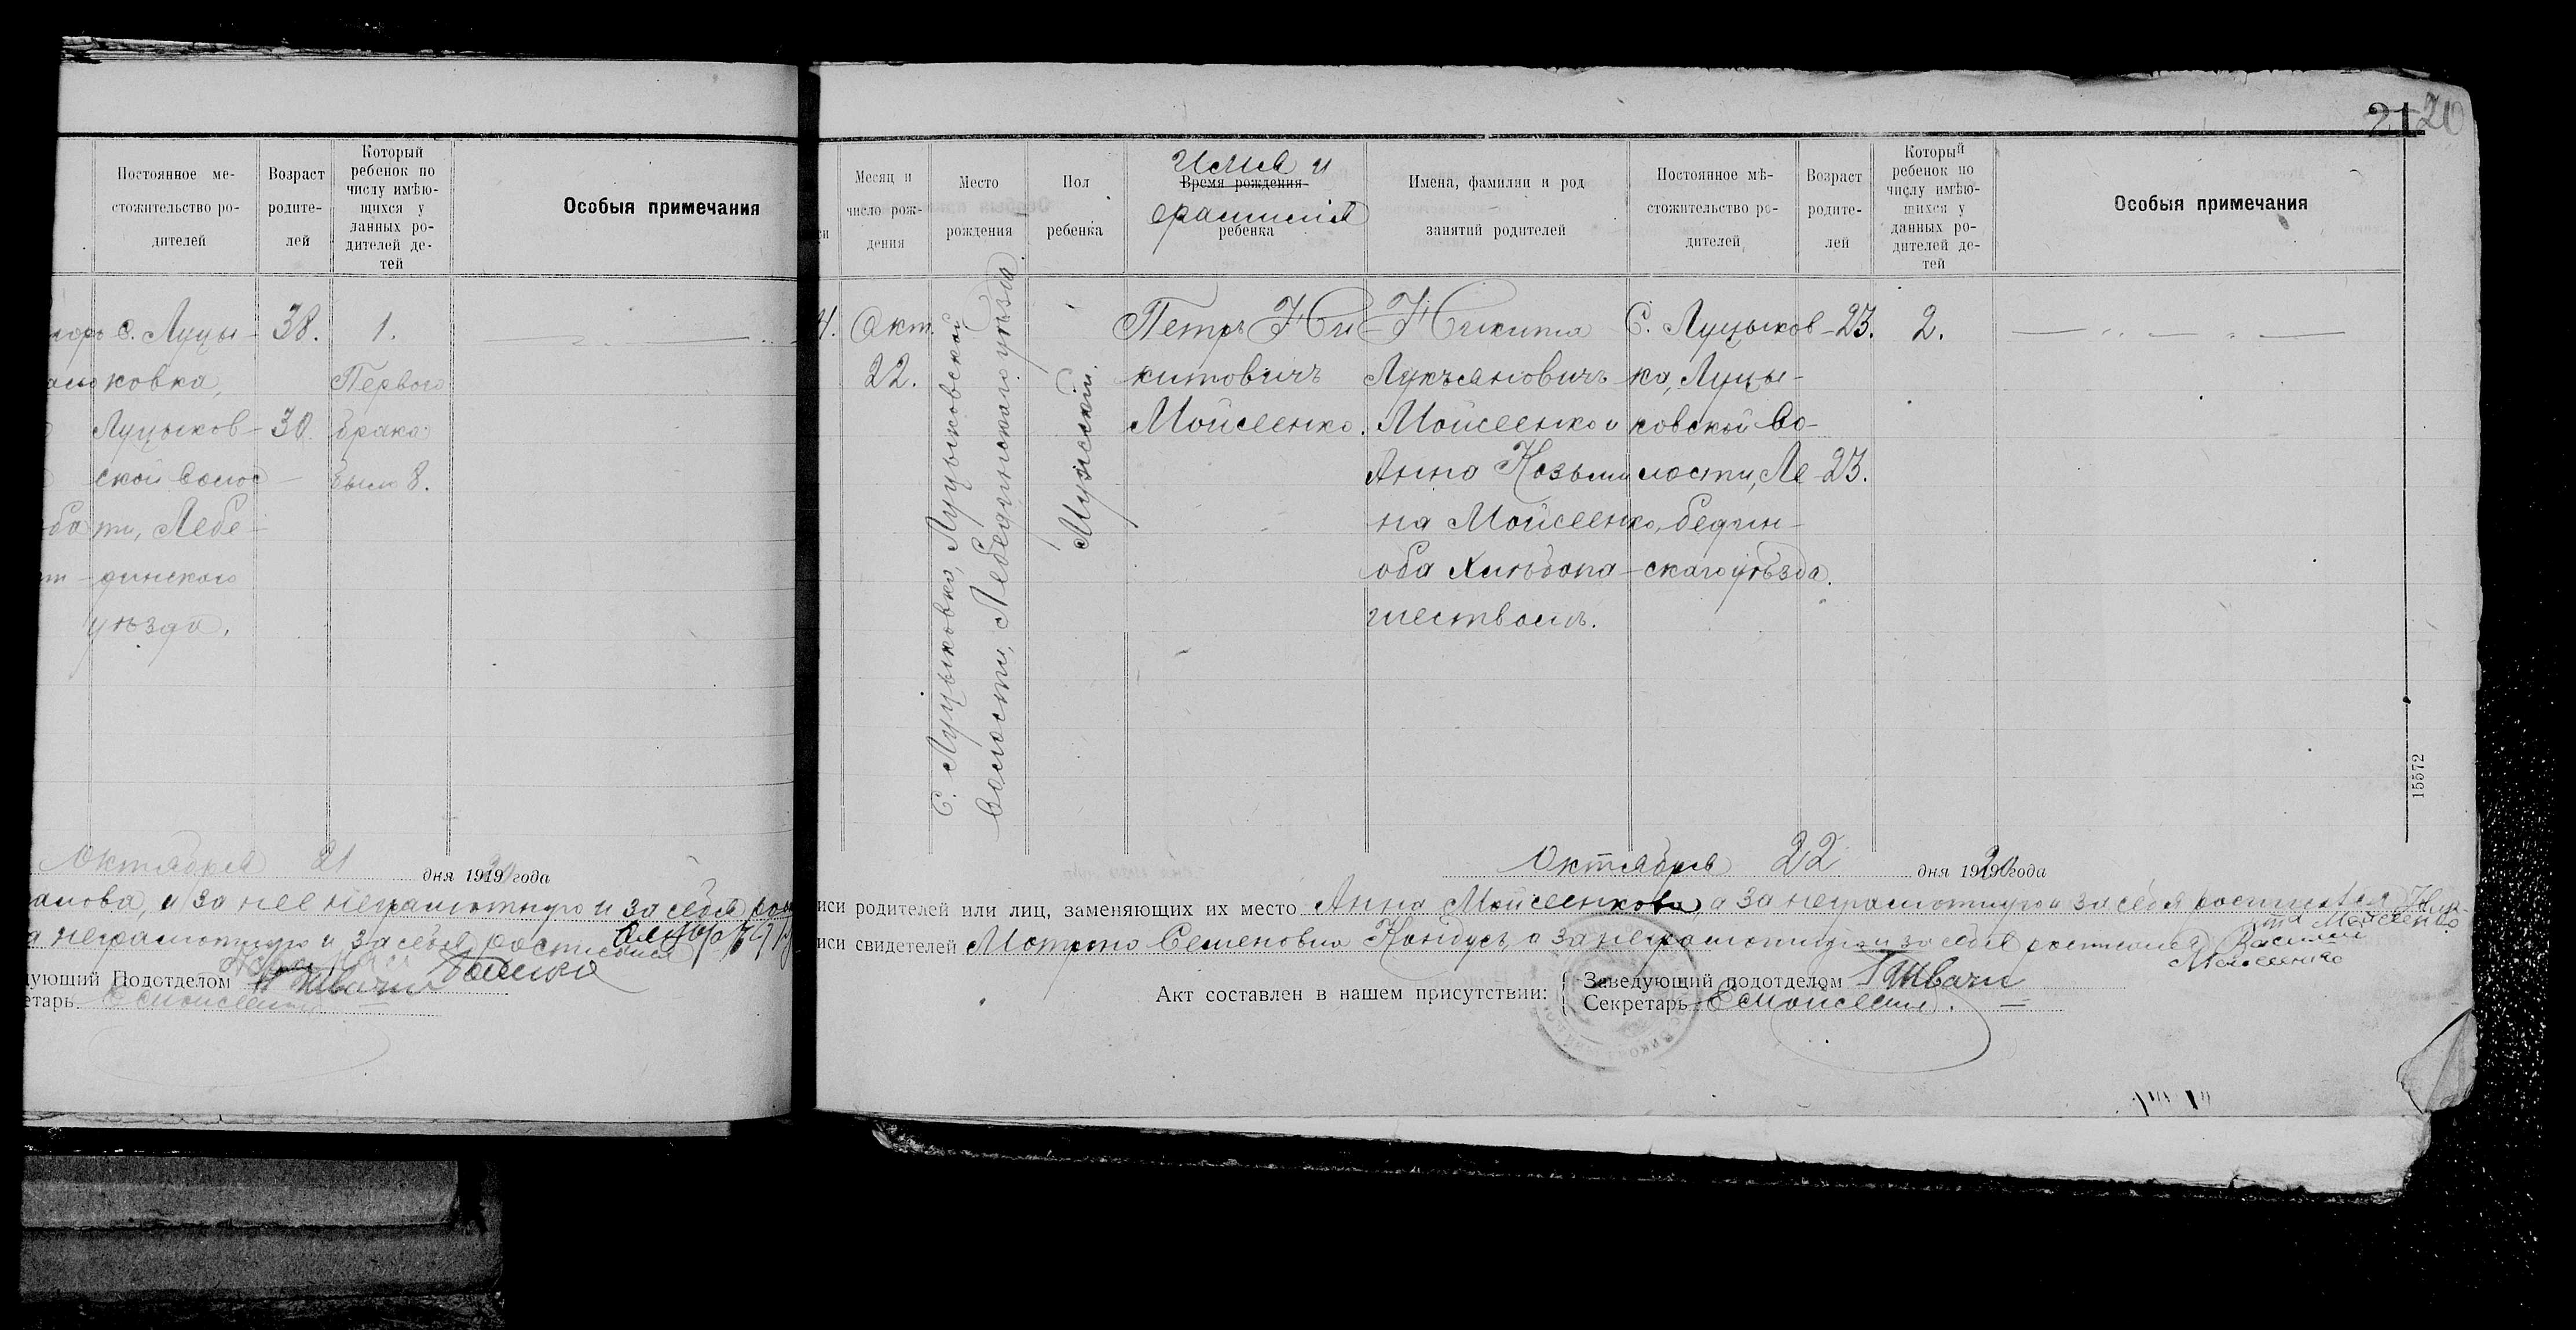 Постоянное ме-
стожительство ро-
дителей
Возраст
родите-
лей
Который
ребенок по
числу имѣю-
щихся у
данных ро-
дителей де-
тей
Особыя примечания
с. Луцы-
ковка,
Луцыков-
ской волос
ти, Лебе-
динского
уѣзда.
38.
30.
1.
Первого
брака
было 8.
Октября 21 дня 1920 года
неграмотную и за себя
а неграмотную и за себя расписался
дующий Подотделом Н Твачи
етарь Е Моисеенко
21 20
си
Месяц и
число рож-
дения
Место
рождения
Пол
ребенка
Имя и
Время рождения
фамилия
ребенка
Имена, фамилии и род
занятий родителей
Постоянное мѣ-
стожительство ро-
дителей
Возраст
родите-
лей
Который
ребенок по
числу имѣю-
щихся у
данных ро-
дителей де-
тей
Особыя примечания
Окт.
22.
С. Луцыковка, Луцыковской
волости, Лебединского уѣзда
Мужский.
Петръ Ни-
китовичъ
Мойсеенко.
Никита
Лукъяновичъ
Мойсеенко и
Анна Козьми
на Мойсеенко,
оба хлѣбопа-
шествомъ.
С. Луцыков-
ка, Луцы-
ковской во-
лости, Ле-
бедин-
скаго уѣзда.
23.
23.
2.
15572
Октября 22 дня 1920 года
иси родителей или лиц, заменяющих их место Анна Мойсеенкова, а за неграмотную и за себя росписался Ники-
та Мойсеенко
иси свидетелей Мотрона Семеновна Кандусь а за неграмотную и за себя росписался Василий
Мойсеенко
Акт составлен в нашем присутствии:
Заведующий подотделом Твачи
Секретарь Е Мойсеенко.